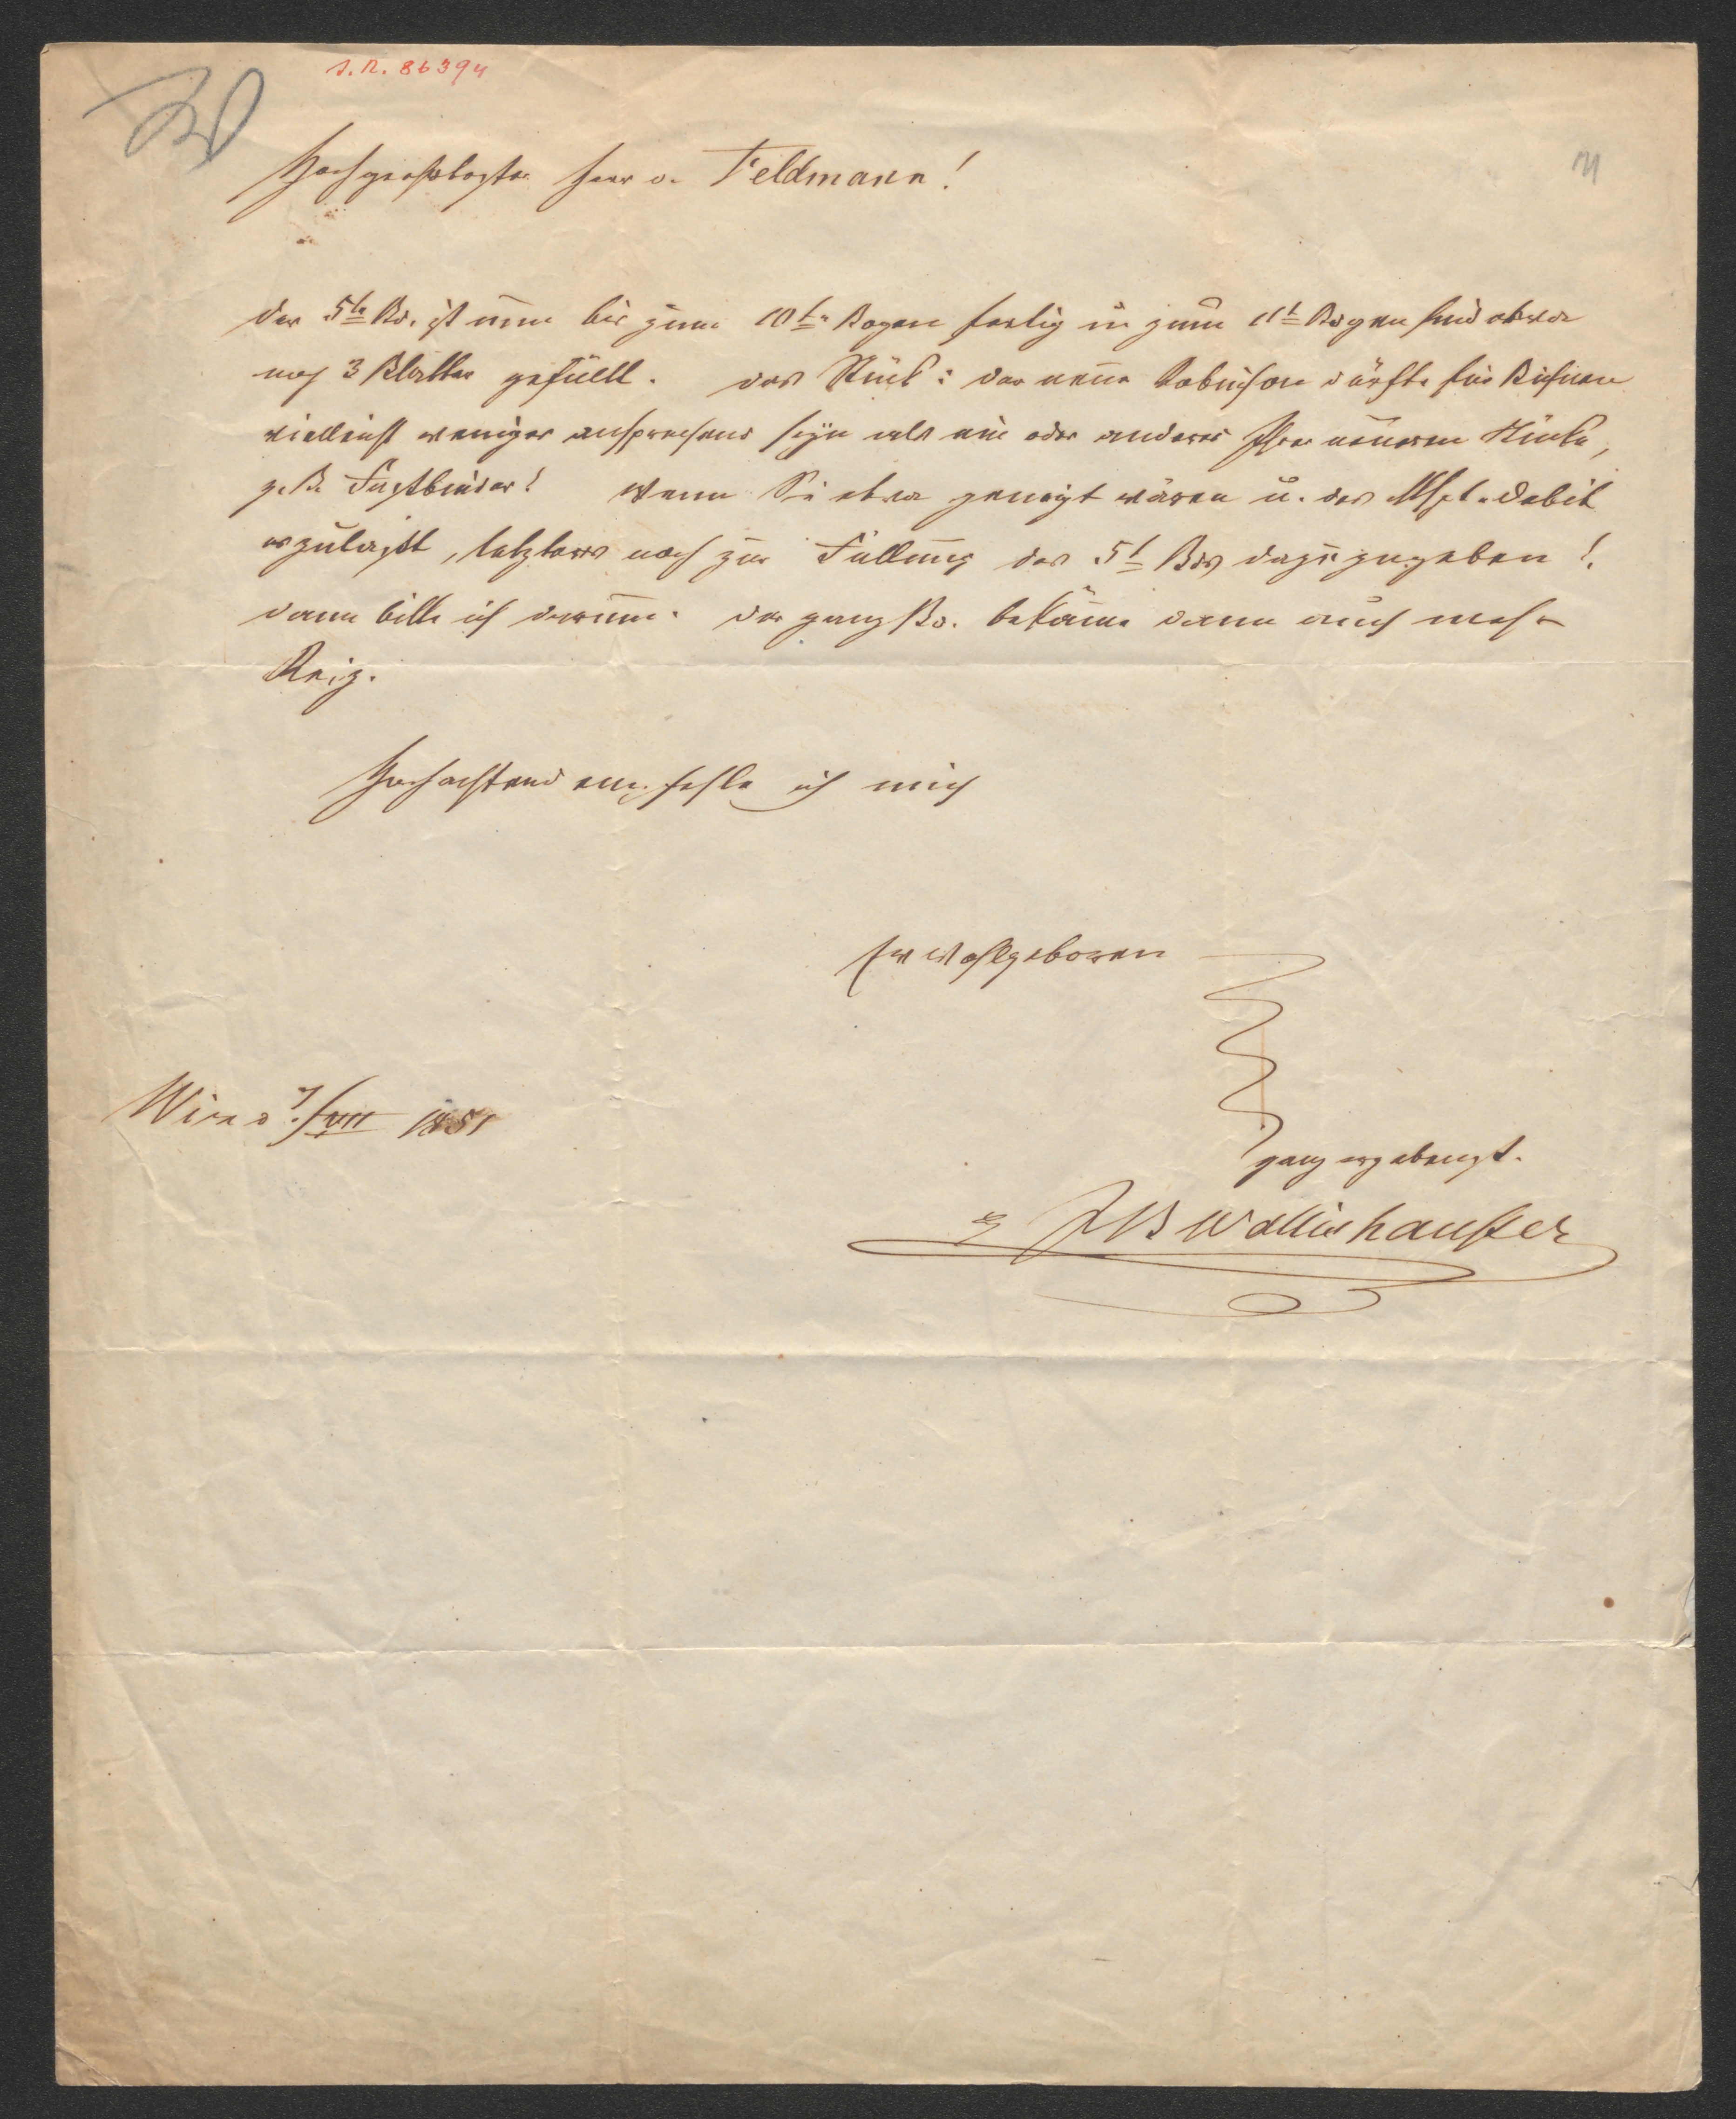 W
I. N. 86394
11
Hochgeschätzter Herr v. Feldmann!
der 5te Bd. ist nun bis zum 10ten Bogen fertig u zum 11t Bogen sind etwa
noch 3 Blätter gefüllt. das Stück: der neue Robinson dürfte für Bühnen
vielleicht weniger ansprechend seyn als ein oder anderes Ihrer neueren Stücke,
z. B. Faßbinder! Wenn Sie etwa geneigt wären u. der Mspt-Debit
es zuläßt, letzteres noch zur Füllung des 5t Bds dazuzugeben!
dann bitte ich darum. der ganz Bd. bekäme dann auch mehr
Reiz.
Hochachtend empfehle ich mich
Ew Wohlgeboren
Wien d 7./VII 1851
ganz ergebenst.
JB Wallishausser